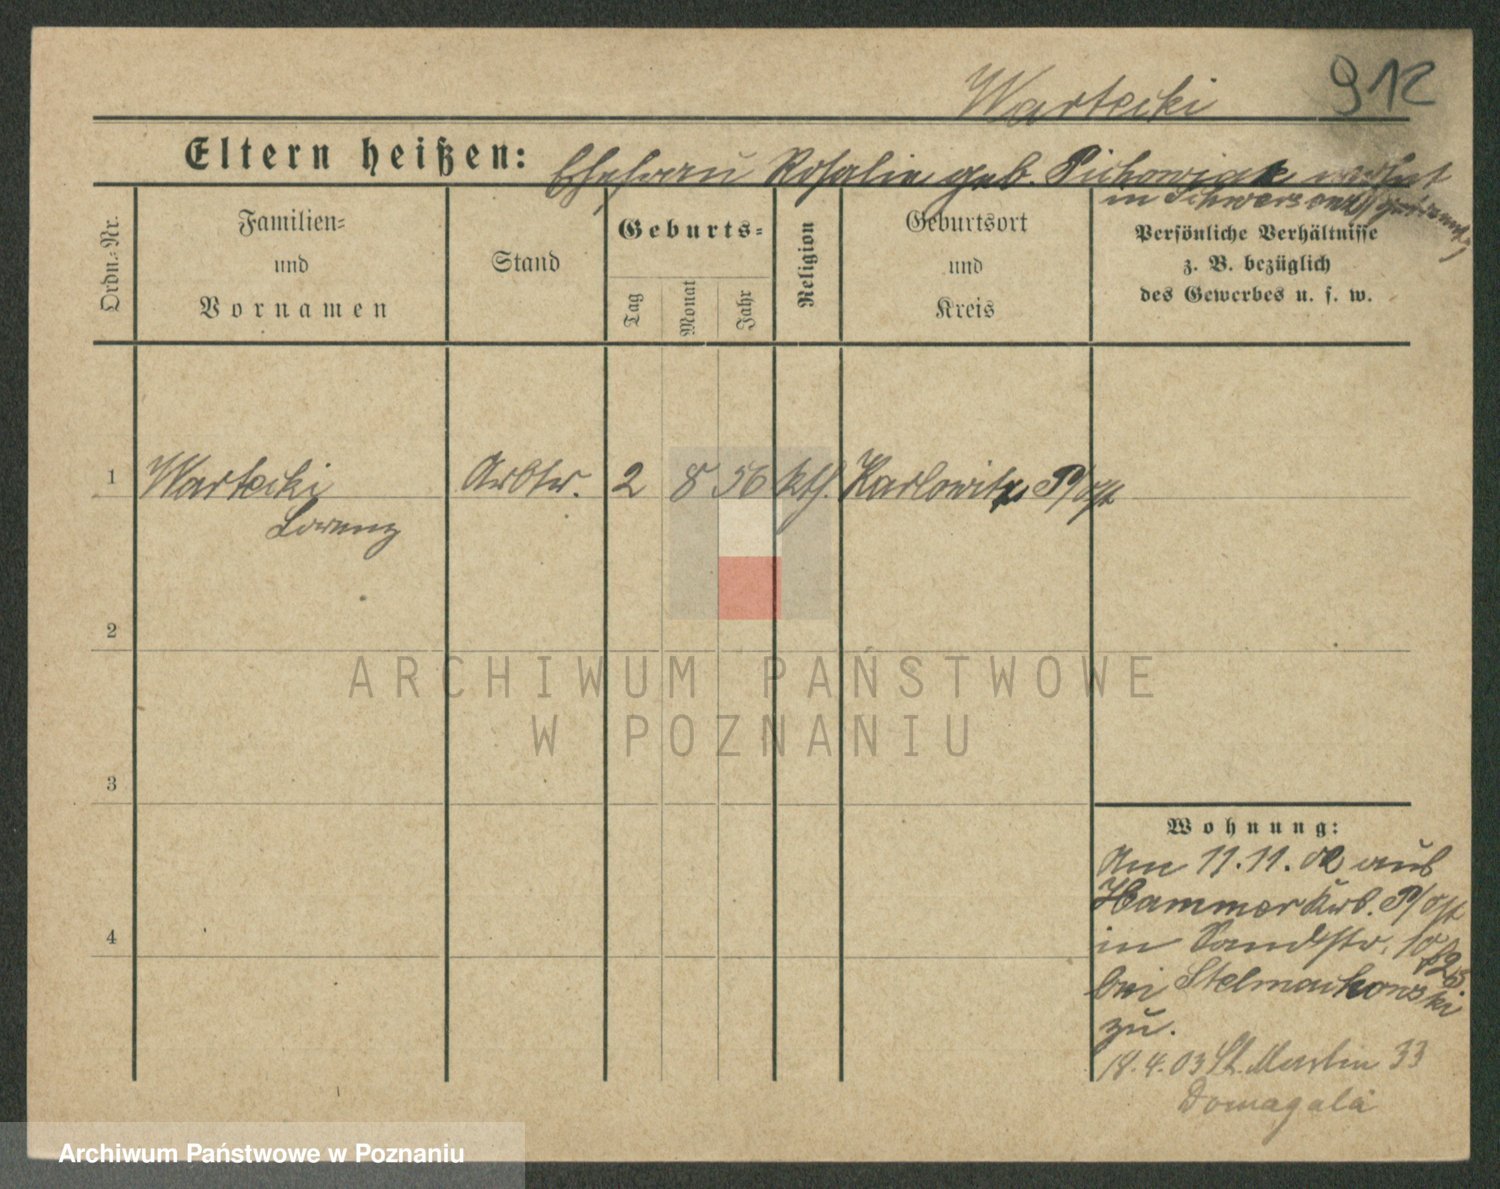 Wartecki 912
Eltern heißen: Ehefrau Rosalie geb. Pichowiak wohnt
in Schwersenz
Ordn.-Nr.
Familien-
und
Vornamen
Stand
Geburts-
Tag
Monat
Jahr
Religion
Geburtsort
und
Kreis
Persönliche Verhältnisse
z. B. bezüglich
des Gewerbes u. s. w.
1 Wartecki Arbtr. 2 8 56 kth. Karlowitz P/Ost
Lorenz
2
ARCHIWUM PAŃSTWOWE
W POZNANIU
3
Wohnung:
Am 11.11.02 aus
Hammer Krb. P/Ost
4
in Sandstr. 10
bei Stelmachowski
zu.
18.4.03 St. Martin 33
Domagala
Archiwum Państwowe w Poznaniu